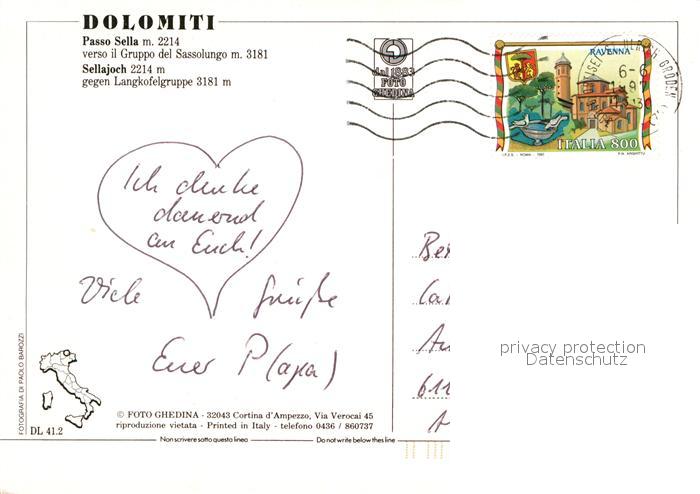 DOLOMITI
Passo Sella m. 2214
verso il Gruppo del Sassolungo m. 3181
Sellajoch 2214 m
gegen Langkofelgruppe 3181 m
dal 1883
FOTO
GHEDINA
RAVENNA
ITALIA 800
I.P.Z.S. - ROMA - 1993
6-6
Ich denke
dauernd
an Euch!
Viele Grüße
Euer P(apa)
privacy protection
Datenschutz
611
FOTOGRAFIA DI PAOLO BAROZZI
DL 41.2
© FOTO GHEDINA - 32043 Cortina d'Ampezzo, Via Verocai 45
riproduzione vietata - Printed in Italy - telefono 0436 / 860737
Non scrivere sotto questa linea
Do not write below this line